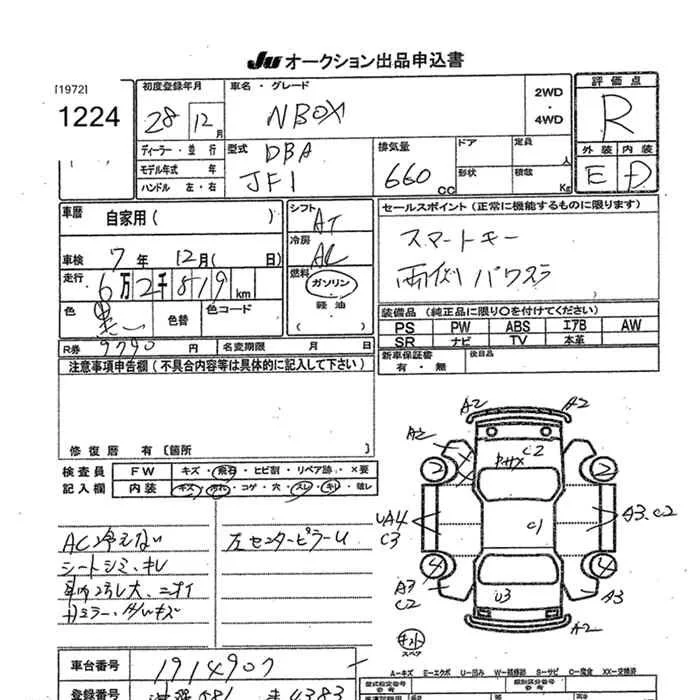 Ju オークション出品申込書
[1972]
1224
初度登録年月
28 12月
車名・グレード
NBOX
2WD
・
4WD
評価点
R
外装 内装
E D
ディーラー・並行
モデル年式 年
ハンドル 左・右
型式 DBA
JF1
排気量
660 CC
ドア
形状
定員 人
積載 Kg
車歴 自家用( )
車検 7年 12月( 日)
走行 6万2千819km
色 黒 色替 色コード
R券 9790円 名変期限 月 日
シフト AT
冷房 AC
燃料 ガソリン
軽油
( )
セールスポイント(正常に機能するものに限ります)
スマートキー
両側パワスラ
装備品(純正品に限り○を付けてください)
PS PW ABS エアB AW
SR ナビ TV 本革
新車保証書
有・無
後日品
注意事項申告欄(不具合内容等は具体的に記入して下さい)
修復歴 有〔箇所 〕
検査員
記入欄
FW キズ・飛石・ヒビ割・リペア跡・×要
内装 キズ・汚れ・コゲ・穴・スレ・キレ・破レ
AC冷えない
シートシミ、キレ
車内汚レ大、ニオイ
左センターピラーU
A2 A2
A2 C2
2 2
UA4
C3
C1
A3、C2
4 4
A3
C2
U3
A3
A2
スペア
A－キズ E－エクボ U－凹み W－補修跡 S－サビ C－腐食 XX－交換済
車台番号 1914907
登録番号 4383